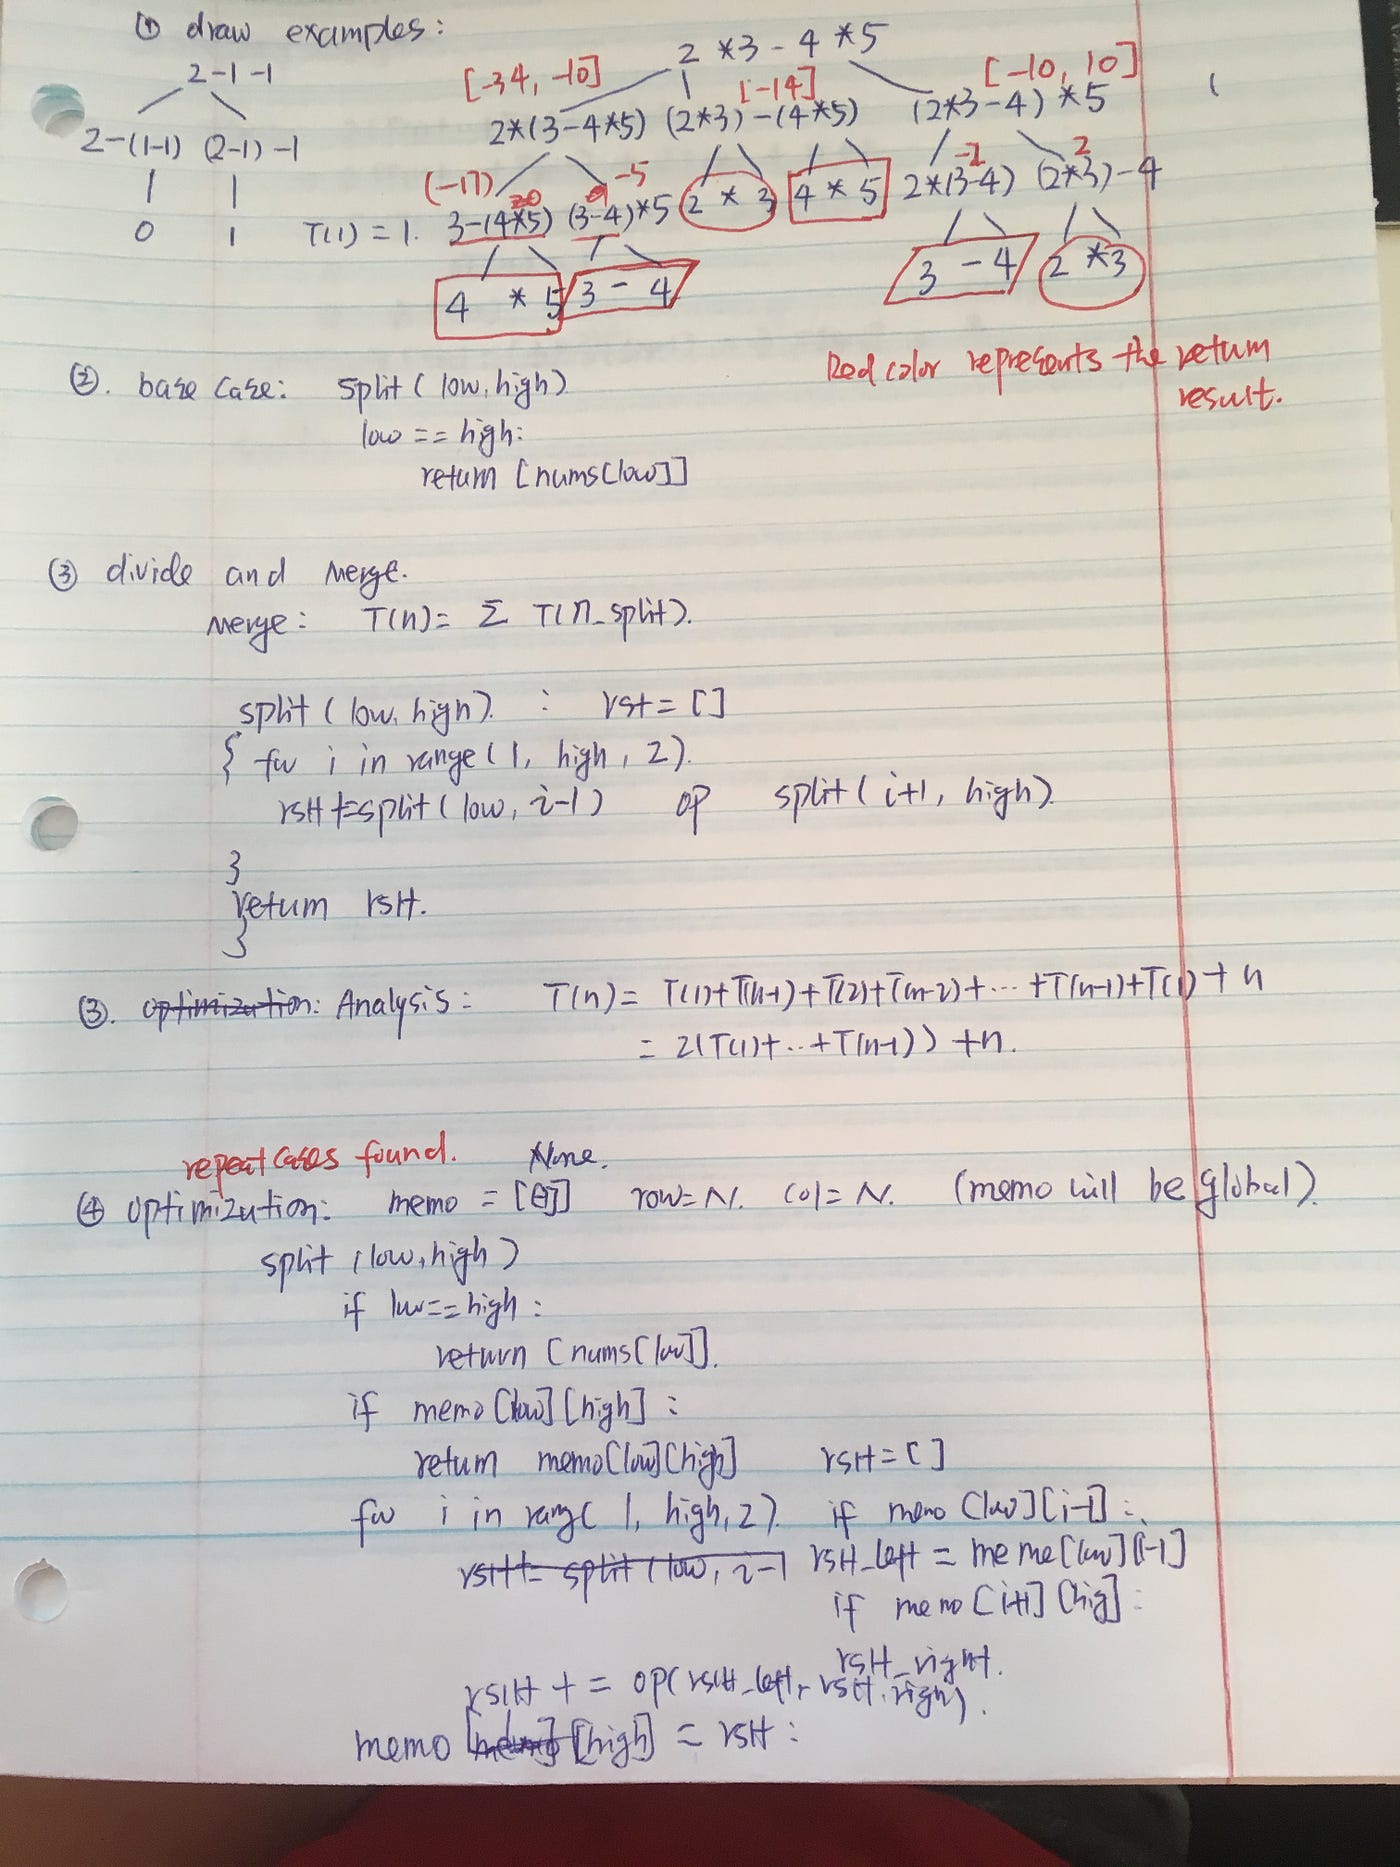 ① draw examples:
2-1-1
2-(1-1) (2-1)-1
0 1
2*3-4*5
[-34, -10] [-14] [-10, 10]
2*(3-4*5) (2*3)-(4*5) (2*3-4)*5
(-17) 20 -5 -2 2
T(1)=1. 3-(4*5) (3-4)*5 2*3 4*5 2*(3-4) (2*3)-4
4 * 5 3 - 4 3 - 4 2 *3
Red color represents the return
result.
②. base case: split(low, high)
low == high:
return [nums[low]]
③ divide and merge.
merge: T(n)= Σ T(n_split).
split(low, high). : rst=[]
{ for i in range(1, high, 2).
rst+=split(low, i-1) op split(i+1, high).
}
return rst.
}
③. optimization: Analysis: T(n)= T(1)+T(n-1)+T(2)+T(n-2)+...+T(n-1)+T(1)+n
= 2(T(1)+..+T(n-1))+n.
repeat cases found. None.
④ optimization: memo = [[]] row=N. col=N. (memo will be global).
split(low, high)
if low==high:
return [nums[low]].
if memo[low][high]:
return memo[low][high] rst=[]
for i in range(1, high, 2). if memo[low][i-1]:
rst+=split(low, i-1 rst_left = meme[low][i-1]
if memo[i+1][hig]:
rst_right.
rst+=op(rst_left, rst_right).
memo [high] = rst: